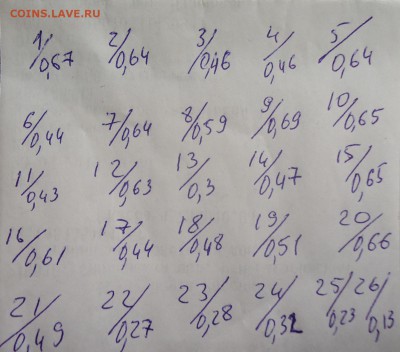 COINS.LAVE.RU
1/0,67 2/0,64 3/0,46 4/0,46 5/0,64
6/0,44 7/0,64 8/0,59 9/0,69 10/0,65
11/0,43 12/0,63 13/0,3 14/0,47 15/0,65
16/0,61 17/0,44 18/0,48 19/0,51 20/0,66
21/0,49 22/0,27 23/0,28 24/0,32 25/0,23 26/0,13